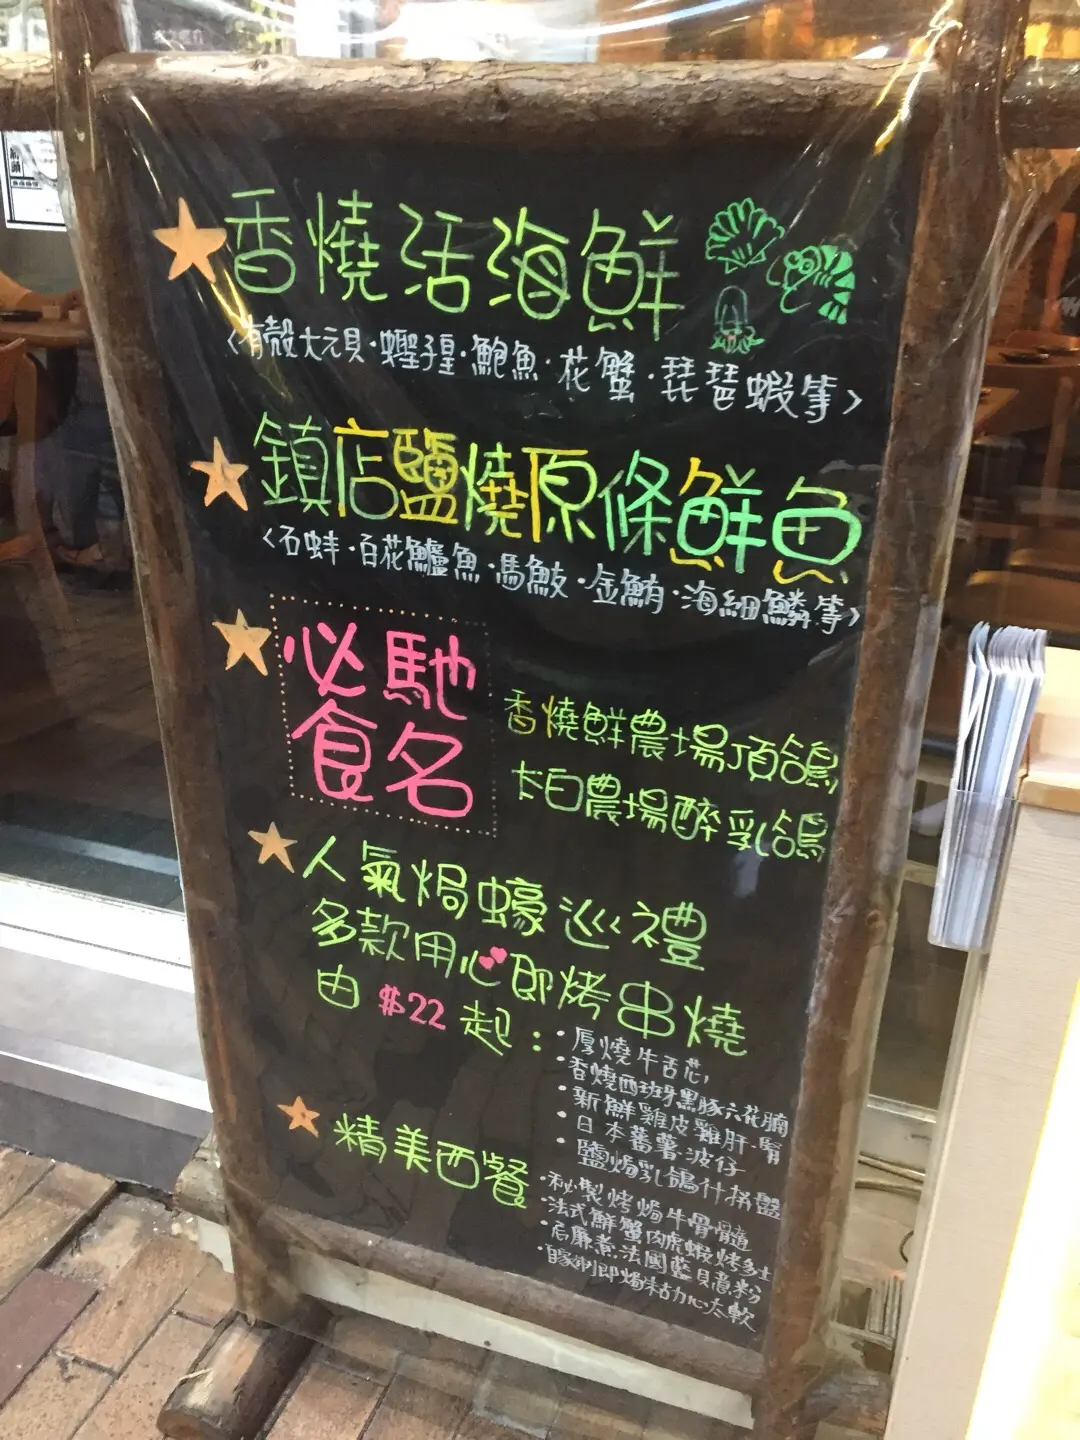 香燒活海鮮
<有殼大元貝·蟶子皇·鮑魚·花蟹·琵琶蝦等>
鎮店鹽燒原條鮮魚
<石蚌·百花鱸魚·馬鮁·金鮪·海細鱗等>
必馳
食名
香燒鮮農場頂鴿
太白農場醉乳鴿
人氣焗蠔巡禮
多款用心即烤串燒
由 $22 起：
·厚燒牛舌芯,
·香燒西班牙黑豚六花腩
·新鮮雞皮雞肝·腎
·日本蕃薯·波仔
·鹽焗乳鴿什拼盤
精美西餐
·秘製烤焗牛骨髓
·法式鮮蟹肉虎蝦烤多士
·忌廉煮法國藍貝意粉
·自家制即焗朱古力心太軟